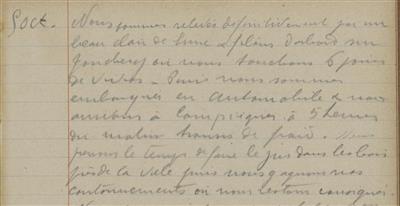 9 oct. Nous sommes relevés définitivement par un
beau clair de lune
où nous touchons 6 jours
de vivres - Puis nous sommes
embarqués en automobile & nous
arrivons à Compiègne à 5 heures
du matin transis de froid. Nous
prenons le temps de faire le jus dans les bois
près de la ville puis nous gagnons nos
cantonnements où nous restons